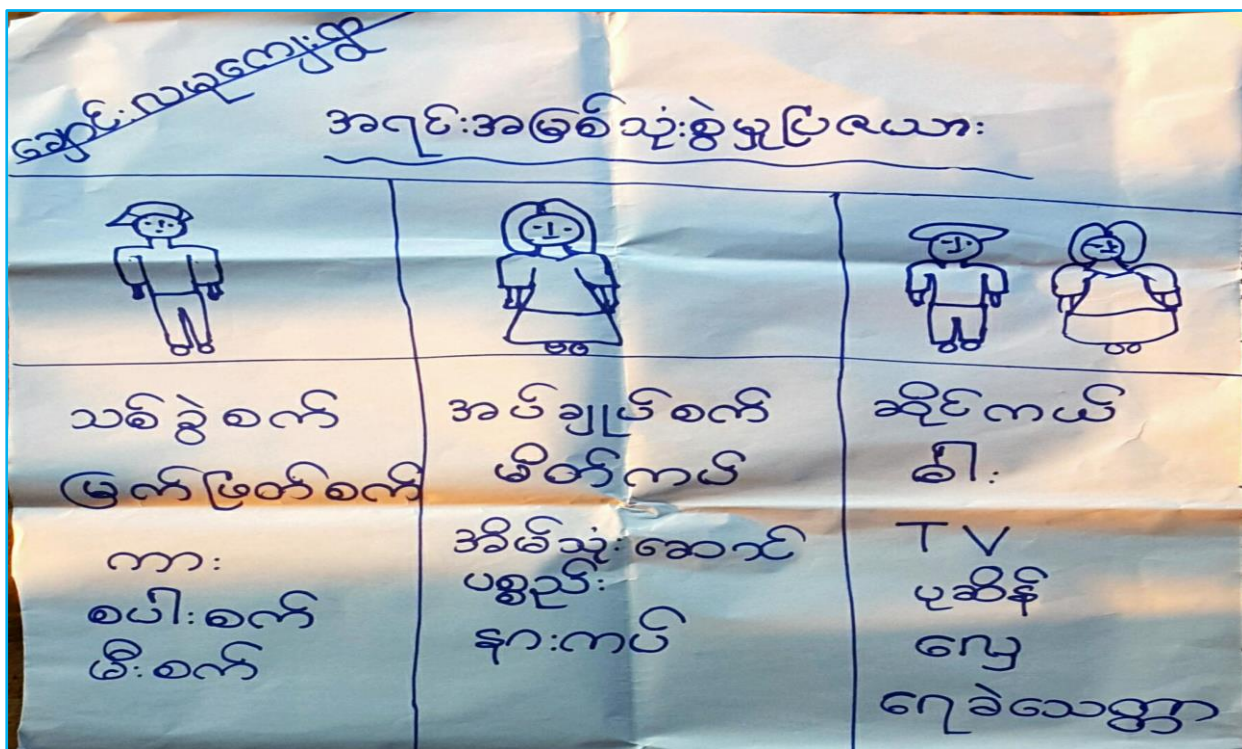 ချောင်းလယုကျေးရွာ
အရင်းအမြစ်သုံးစွဲမှုပြဇယား
သစ်ခွဲစက်
မြက်ဖြတ်စက်
ကား
စပါးစက်
မီးစက်
အပ်ချုပ်စက်
မိတ်ကပ်
အိမ်သုံးဆောင်
ပစ္စည်း
နားကပ်
ဆိုင်ကယ်
ဓါး
TV
ပုဆိန်
လှေ
ရေခဲသေတ္တာ